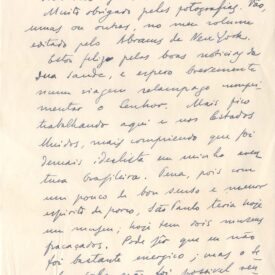 Muito obrigado pelas fotografias. Vão,
umas ou outras, no meu volume
editado pelo Abrams de New York.
Estou feliz pelas boas notícias da
sua saude, e espero brevemente
numa viagem relampago cumpri-
mentar o Senhor. Mais fico
trabalhando aqui e nos Estados
Unidos, mais comprendo que foi
demais idealista en minha aven-
tura brasileira. Pena, pois com
um pouco de bom senso e menor
espirito de porco, São Paulo teria hoje
um museu; hoje tem dois museus
fracassados. Pode ser que eu não
foi bastante energico; mas o
não foi possivel